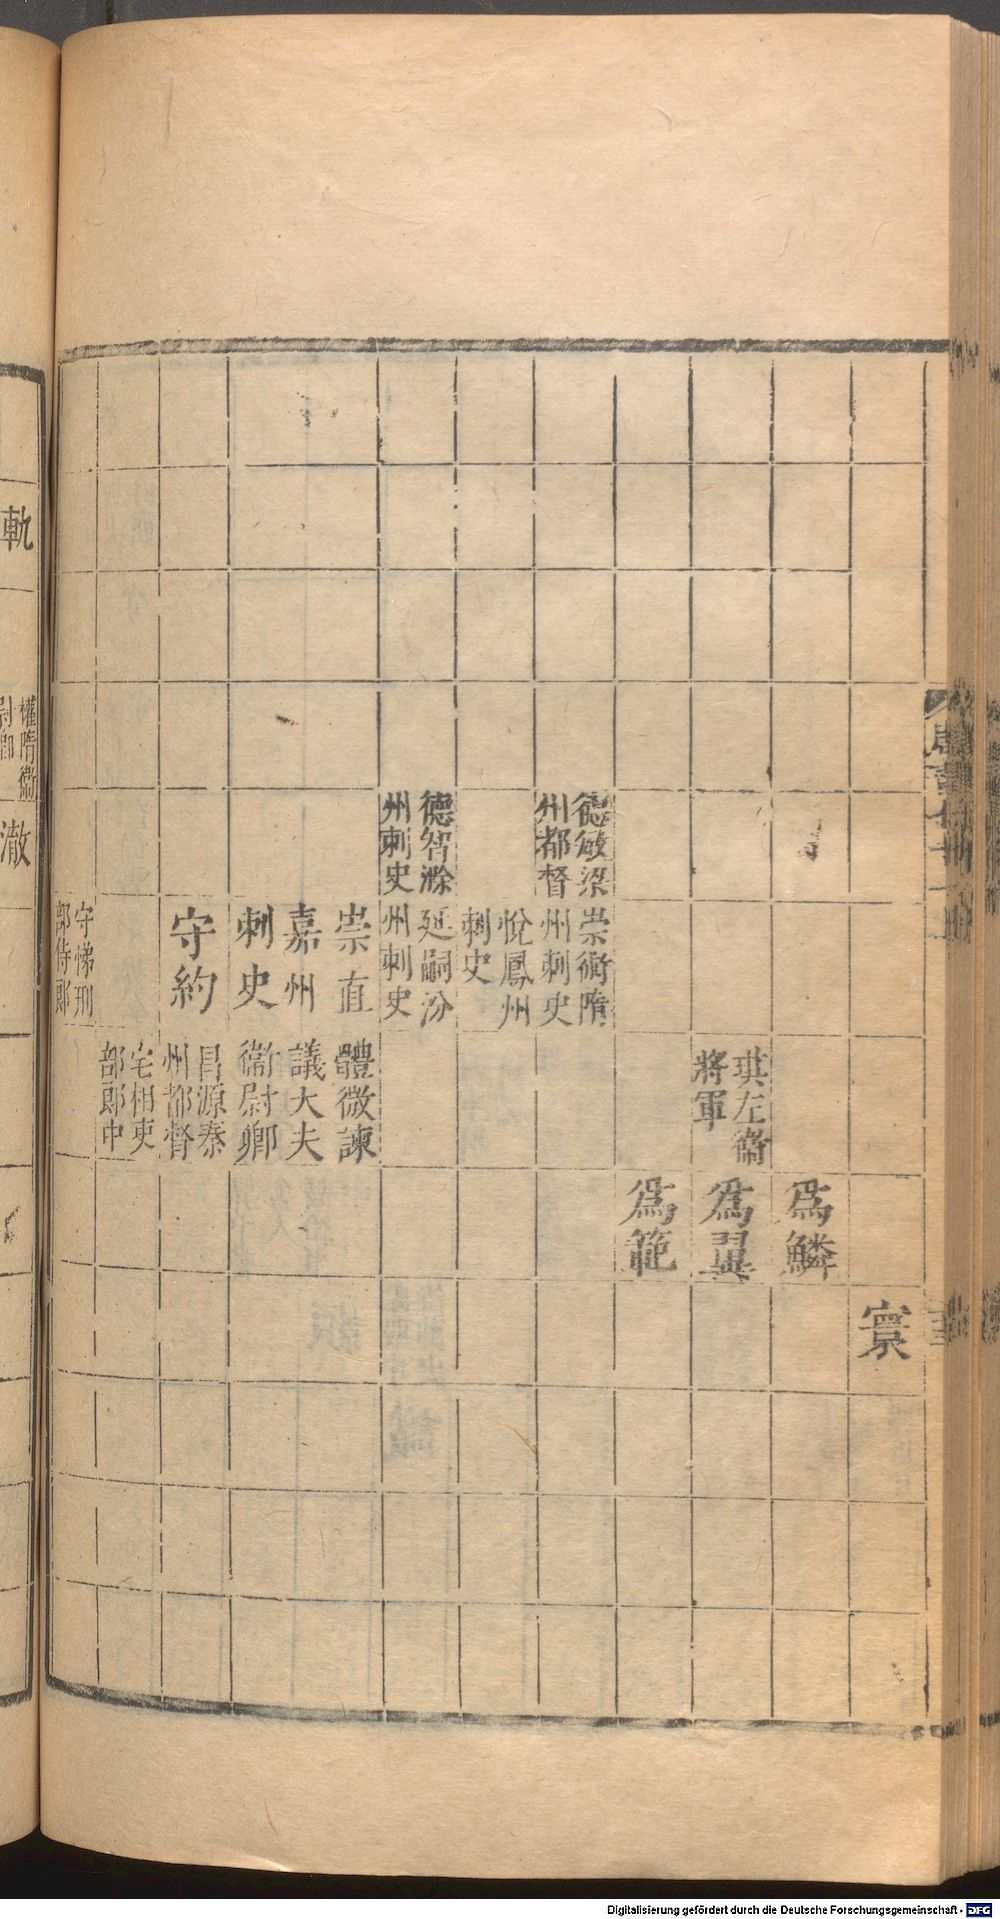 寰
爲鱗
琪左衞
將軍
爲翼
爲範
德敏梁
州都督
崇術隋
州刺史
悅鳳州
刺史
德智滁
州刺史
延嗣汾
州刺史
崇直
嘉州
刺史
體微諫
議大夫
衞尉卿
守約
昌源泰
州都督
宅相吏
部郎中
守悌刑
部侍郎
軌
權隋衞
尉卿
澈
Digitalisierung gefördert durch die Deutsche Forschungsgemeinschaft - DFG